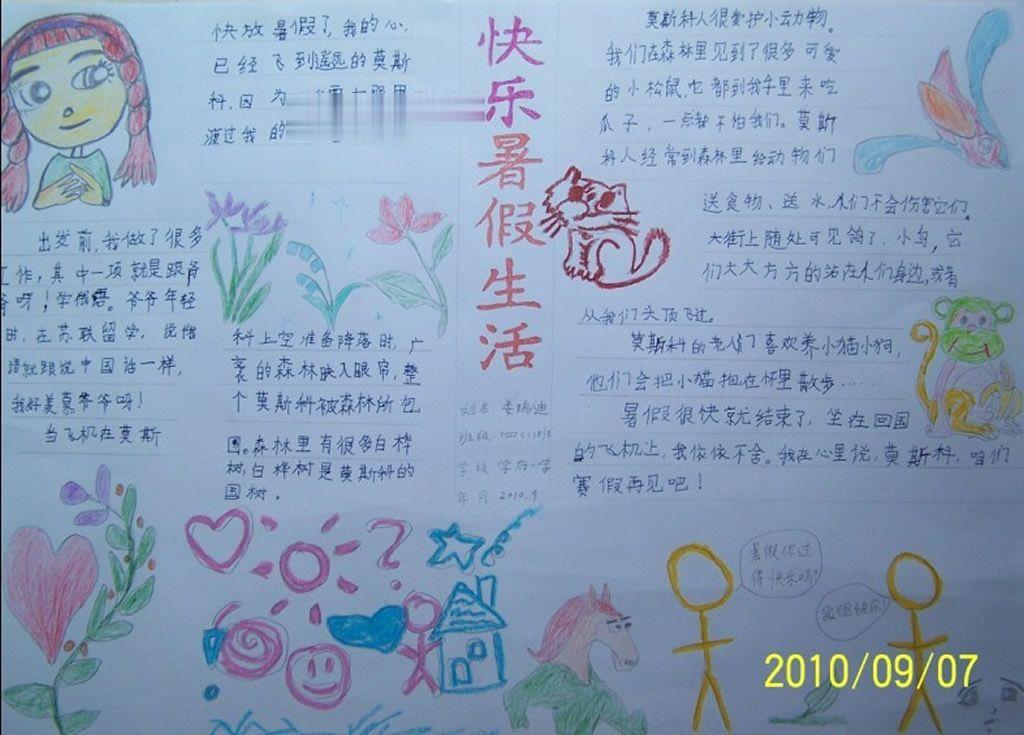 快乐暑假生活
快放暑假了,我的心,
已经飞到遥远的莫斯
科,因为
渡过我的
出发前,我做了很多
工作,其中一项就是跟爷
爷呀!学俄语。爷爷年轻
时,在苏联留学,说俄
语就跟说中国话一样,
我好羡慕爷爷呀!
当飞机在莫斯
科上空准备降落时,广
袤的森林映入眼帘,整
个莫斯科被森林所包
围。森林里有很多白桦
树,白桦树是莫斯科的
国树。
姓名:姜瑞迪
班级
学校 学府小学
年月 2010.9
莫斯科人很爱护小动物。
我们在森林里见到了很多可爱
的小松鼠,它都到我手里来吃
瓜子,一点都不怕我们。莫斯
科人经常到森林里给动物们
送食物、送水,人们不会伤害它们。
大街上随处可见鸽子、小鸟,它
们大大方方的站在人们身边,或者
从我们头顶飞过。
莫斯科的老人们喜欢养小猫小狗,
他们会把小猫抱在怀里散步……
暑假很快就结束了,坐在回国
的飞机上,我依依不舍。我在心里说,莫斯科,咱们
寒假再见吧!
暑假你过
得快乐吗?
我很快乐!
2010/09/07